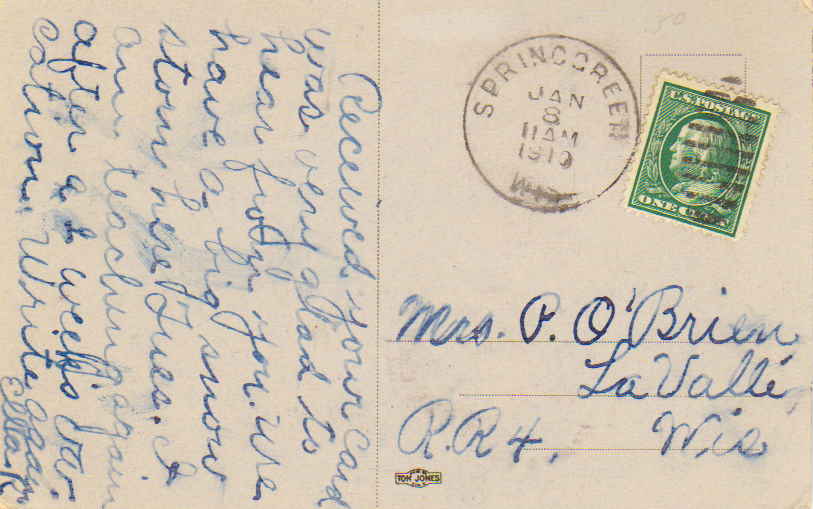 Received your card
was very glad to
hear from you. We
have a big snow
storm here Tues. I
am teaching again
after a 2 weeks va-
cation. Write again
Ella R
SPRING GREEN
JAN
8
11 AM
1910
WIS.
U.S. POSTAGE
ONE CENT
Mrs. P. O'Brien
La Valle,
R.R 4, Wis
TOM JONES